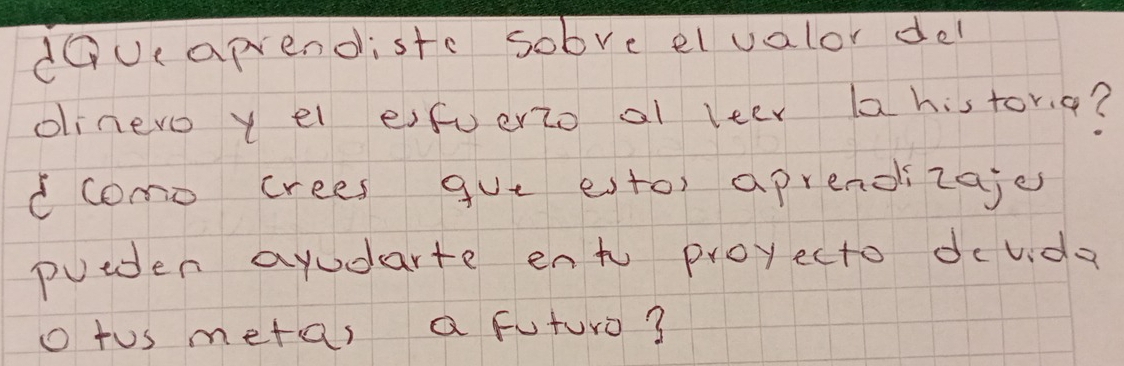 ¿Que aprendiste sobre el valor del
dinero y el esfuerzo al leer la historia?
¿como crees que estos aprendizajes
pueden ayudarte en tu proyecto de vida
o tus metas a futuro?